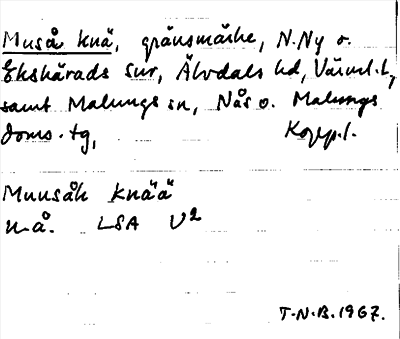 Muså knä, gränsmärke, N.Ny o.
Ekshärads snr, Älvdals hd, Värml. l.,
samt Malungs sn, Nås o. Malungs
doms. tg, Kopp. l.
Muusåk knää
n.å. LSA U2
T.N.B. 1967.